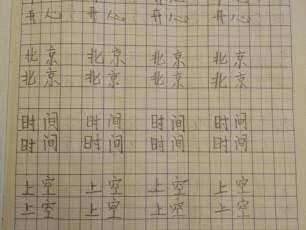 开心 开心 开心 开心
北京 北京 北京 北京
北京 北京 北京 北京
时间 时间 时间 时间
时间 时间 时间 时间
上空 上空 上空 上空
上空 上空 上空 上空